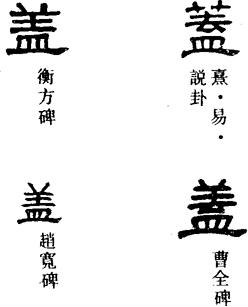 蓋
熹・易・
説卦
盖
衡方碑
蓋
曹全碑
盖
趙寬碑